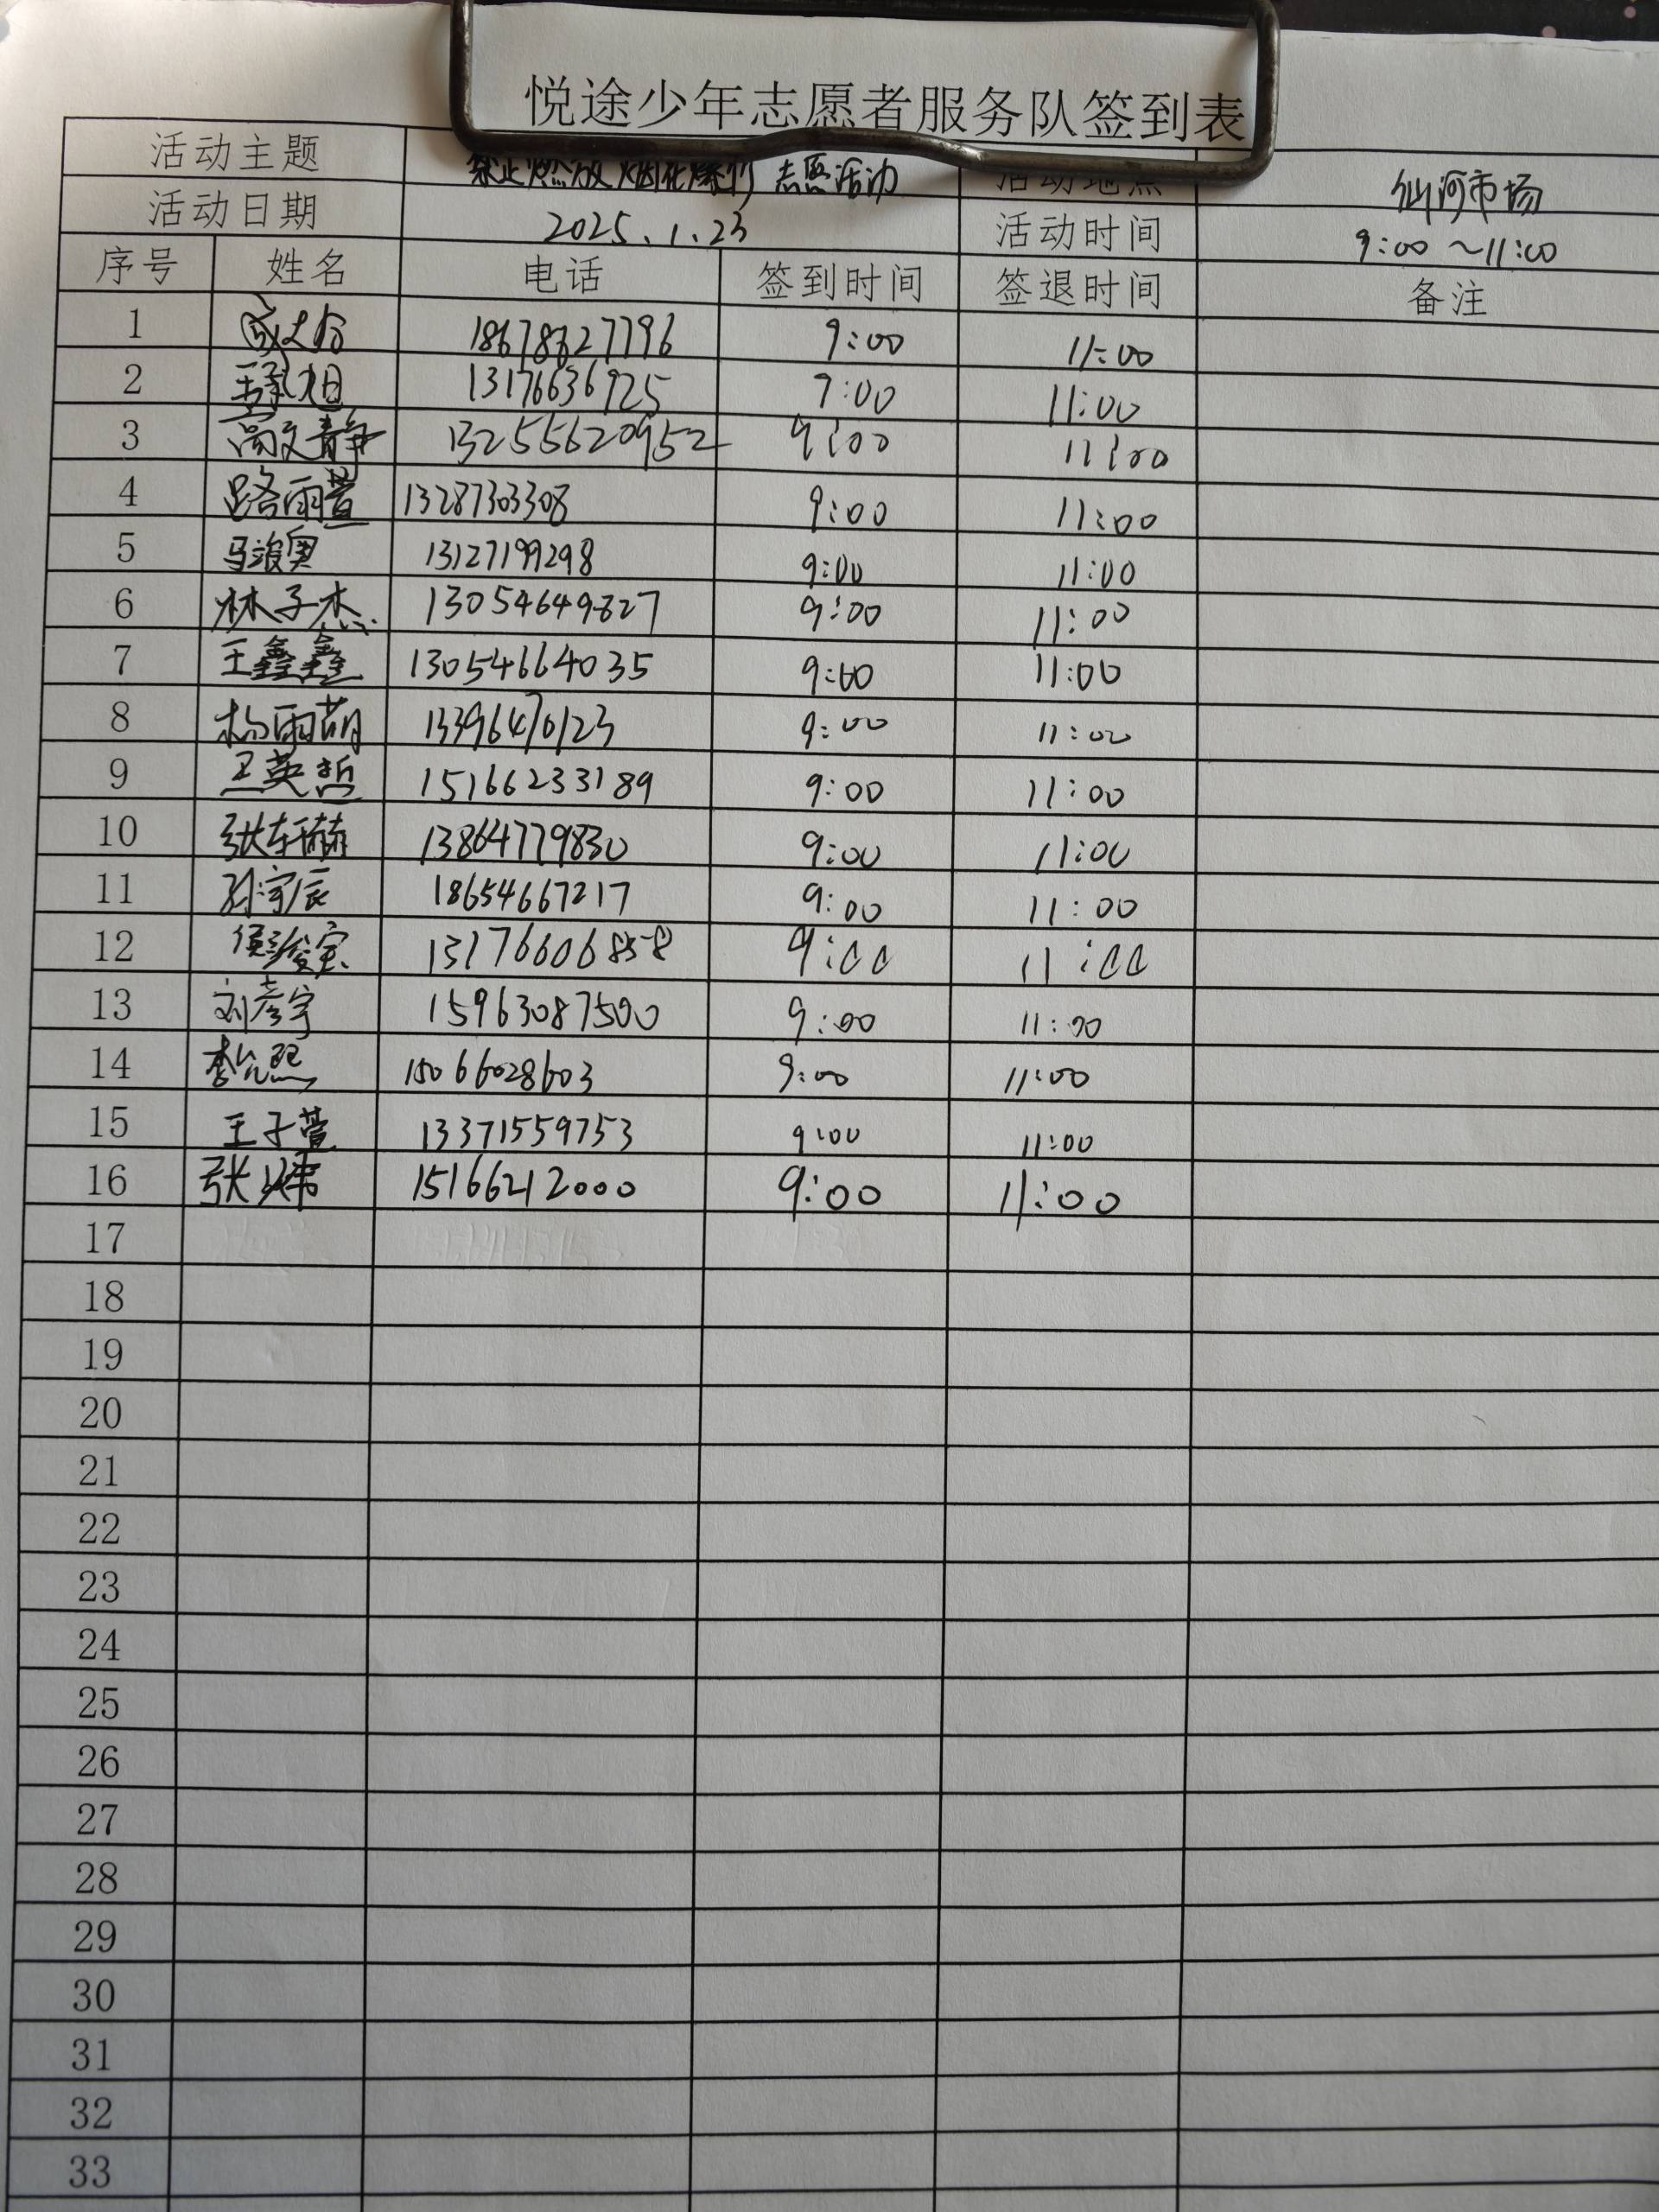 悦途少年志愿者服务队签到表
活动主题 禁止燃放烟花爆竹志愿活动 活动地点 仙河市场
活动日期 2025.1.23 活动时间 9:00～11:00
序号 姓名 电话 签到时间 签退时间 备注
1 18678627796 9:00 11:00
2 13176636925 9:00 11:00
3 高文静 13255620952 9:00 11:00
4 路雨萱 13287303308 9:00 11:00
5 13127199298 9:00 11:00
6 林子杰 13054649827 9:00 11:00
7 王鑫鑫 13054664035 9:00 11:00
8 杨雨萌 13396470123 9:00 11:00
9 王英哲 15166233189 9:00 11:00
10 13864779830 9:00 11:00
11 孙宇辰 18654667217 9:00 11:00
12 13176606858 9:00 11:00
13 刘彦宇 15963087500 9:00 11:00
14 15066028603 9:00 11:00
15 王子萱 13371559753 9:00 11:00
16 15166212000 9:00 11:00
17
18
19
20
21
22
23
24
25
26
27
28
29
30
31
32
33